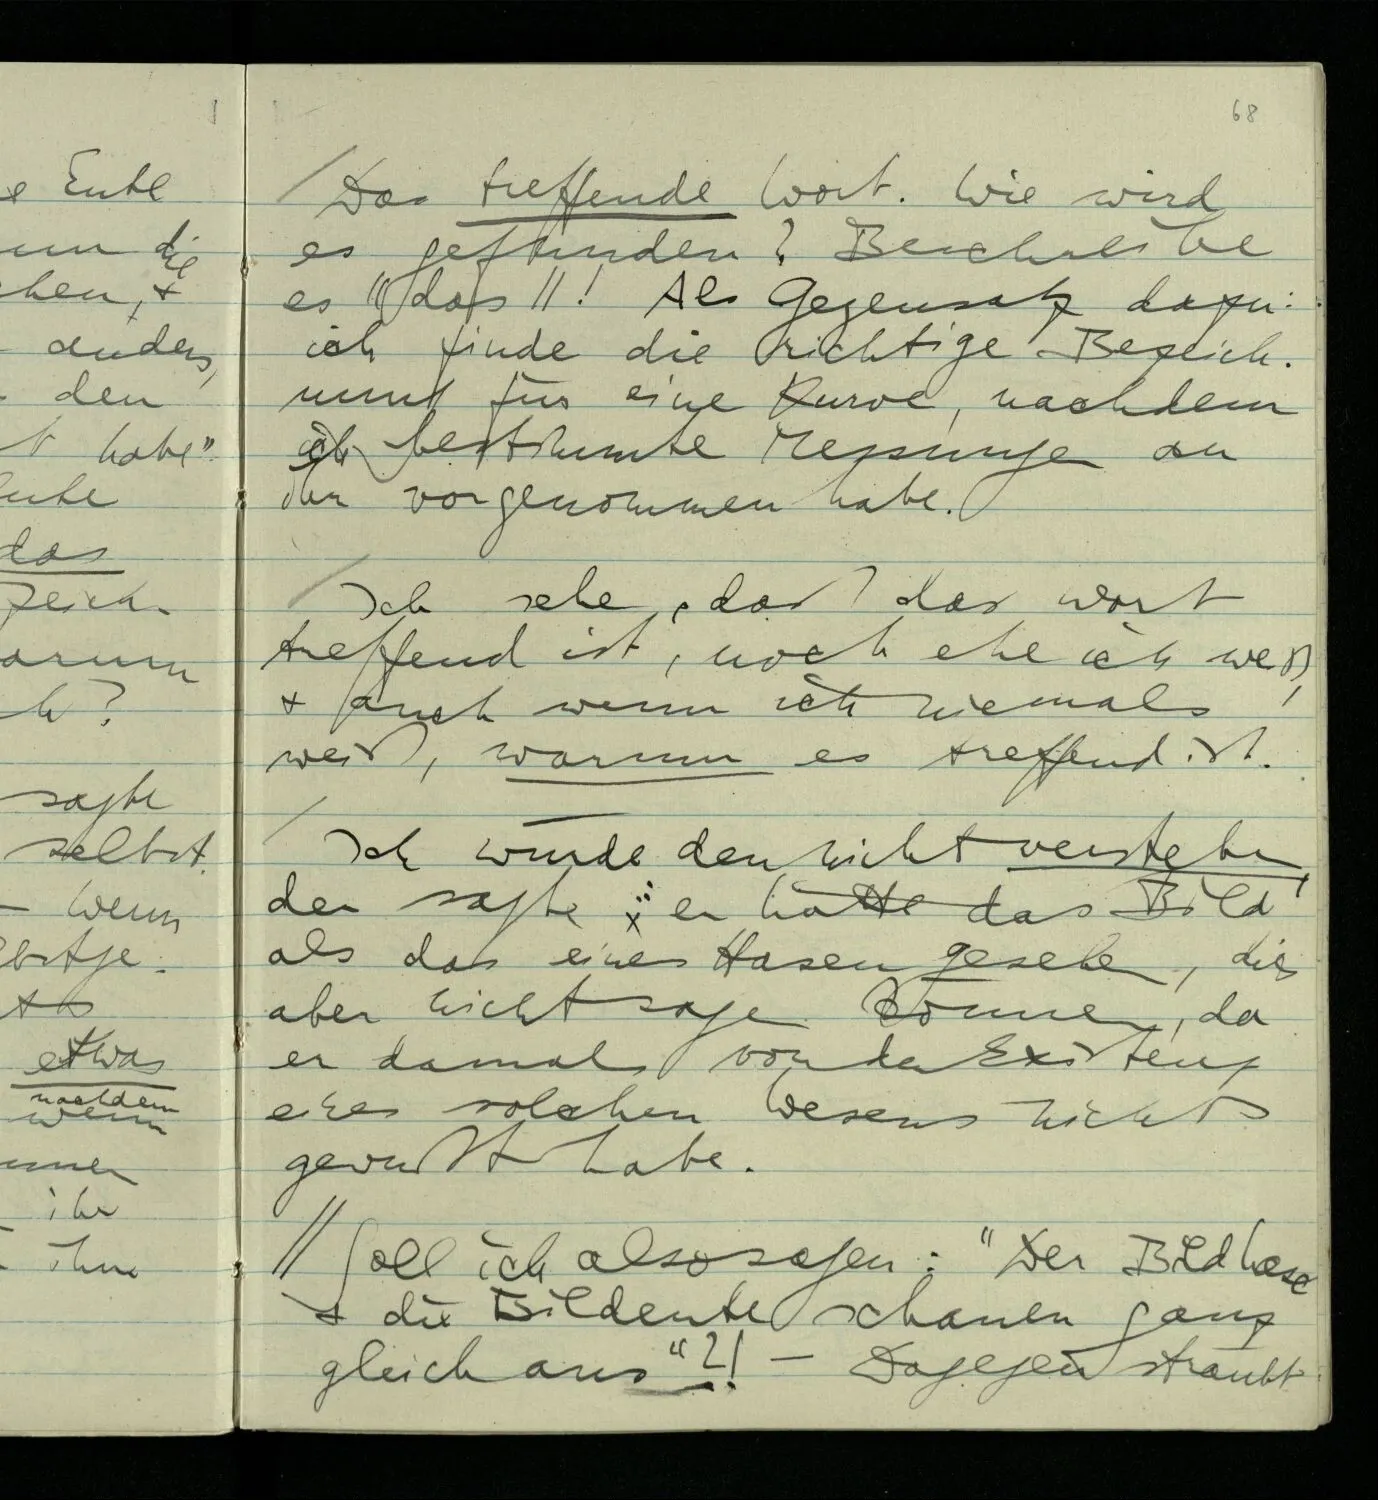 e Ente
um die
chen, +
anders,
den
t habe".
ente
das
zeich-
arum
h?
sagte
selbst.
– wenn
lbstge-
ts
etwas
nachdem
wenn
immer
ihr
ihm
68
/ Das treffende Wort. Wie wird
es gefunden? Beschreibe
es "das"! Als Gegensatz dazu:
ich finde die richtige Bezeich-
nung für eine Kurve, nachdem
ich bestimmte Messungen an
ihr vorgenommen habe.
/ Ich sehe, daß das Wort
treffend ist, noch ehe ich weiß,
+ auch wenn ich niemals
weiß, warum es treffend ist.
/ Ich würde den nicht verstehen,
der sagte: er hätte das Bild
als das eines Hasen gesehen, dies
aber nicht sagen können, da
er damals von der Existenz
eines solchen Wesens nichts
gewußt habe.
// Soll ich also sagen: "Der Bildhase
+ die Bildente schauen ganz
gleich aus"?! – Dagegen sträubt